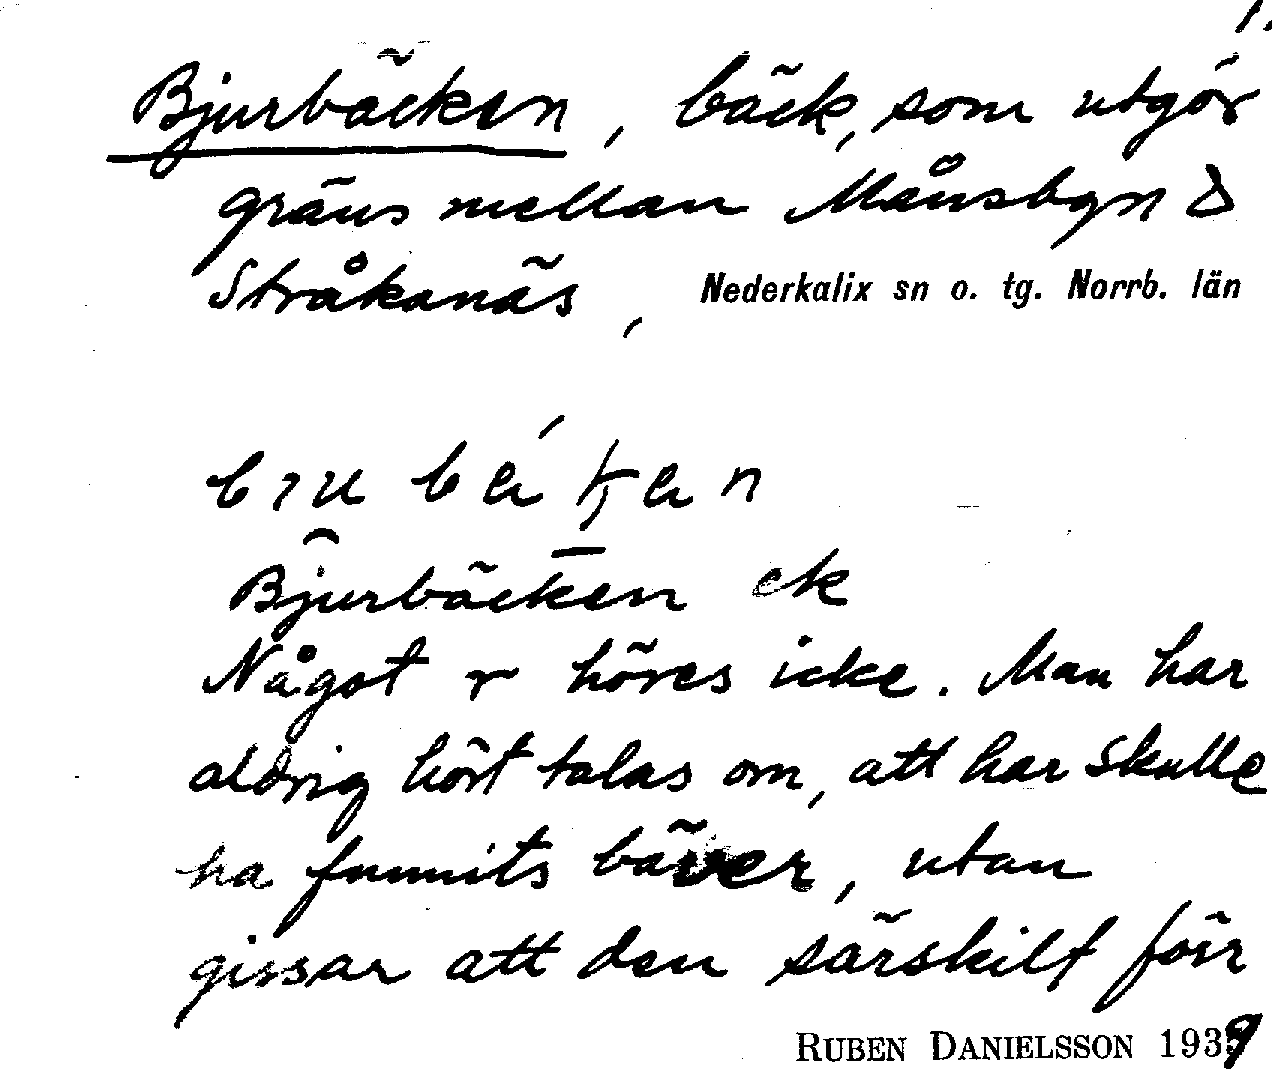 1.
Bjurbäcken, bäck, som utgör
gräns mellan Månsbyn &
Stråkanäs, Nederkalix sn o. tg. Norrb. län
Bjurbäcken ek
Något r höres icke. Man har
aldrig hört talas om, att har skulle
ha funnits bäver, utan
gissar att den särskilt förr
RUBEN DANIELSSON 1939